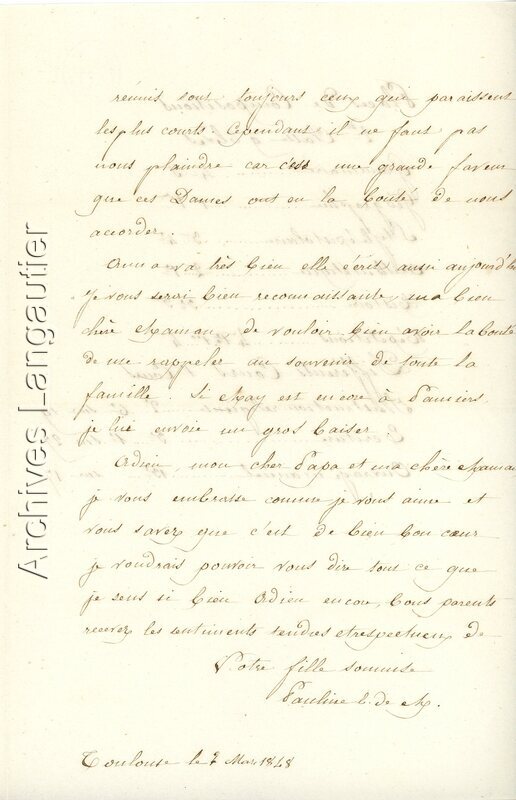 réunis sont toujours ceux qui paraissent
les plus courts cependant il ne faut pas
nous plaindre car c'est une grande faveur
que ces Dames ont eu la bonté de nous
accorder.
Anna va très bien elle écrit aussi aujourd'hui
Je vous serai bien reconnaissante, ma bien
chère Maman, de vouloir bien avoir la bonté
de me rappeler au souvenir de toute la
famille. Si May est encore à Pamiers
je lui envoie un gros baiser.
Adieu, mon cher Papa et ma chère Maman
je vous embrasse comme je vous aime et
vous savez que c'est de bien bon cœur
je voudrais pouvoir vous dire tout ce que
je sens si bien Adieu encore, bons parents
recevez les sentiments tendres et respectueux de
Votre fille soumise
Pauline L. de M.
Toulouse le 2 Mars 1848
Archives Langautier